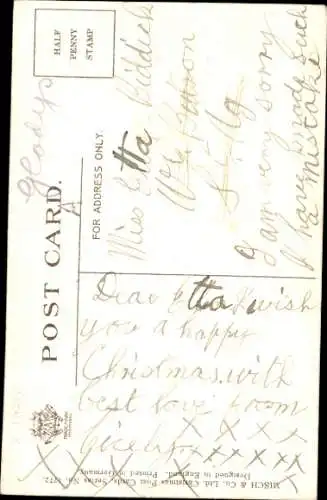 HALF
PENNY
STAMP
POST CARD.
FOR ADDRESS ONLY.
Gladys
Miss Etta Riddick
I am very sorry
I have made such
a mistake
Dear Etta I wish
you a happy
Christmas. with
best love from
x x x x x
x x x x x x x
MISCH & Co., Ltd. Christmas Post Cards Series No. 1972.
Designed in England. Printed in Germany.